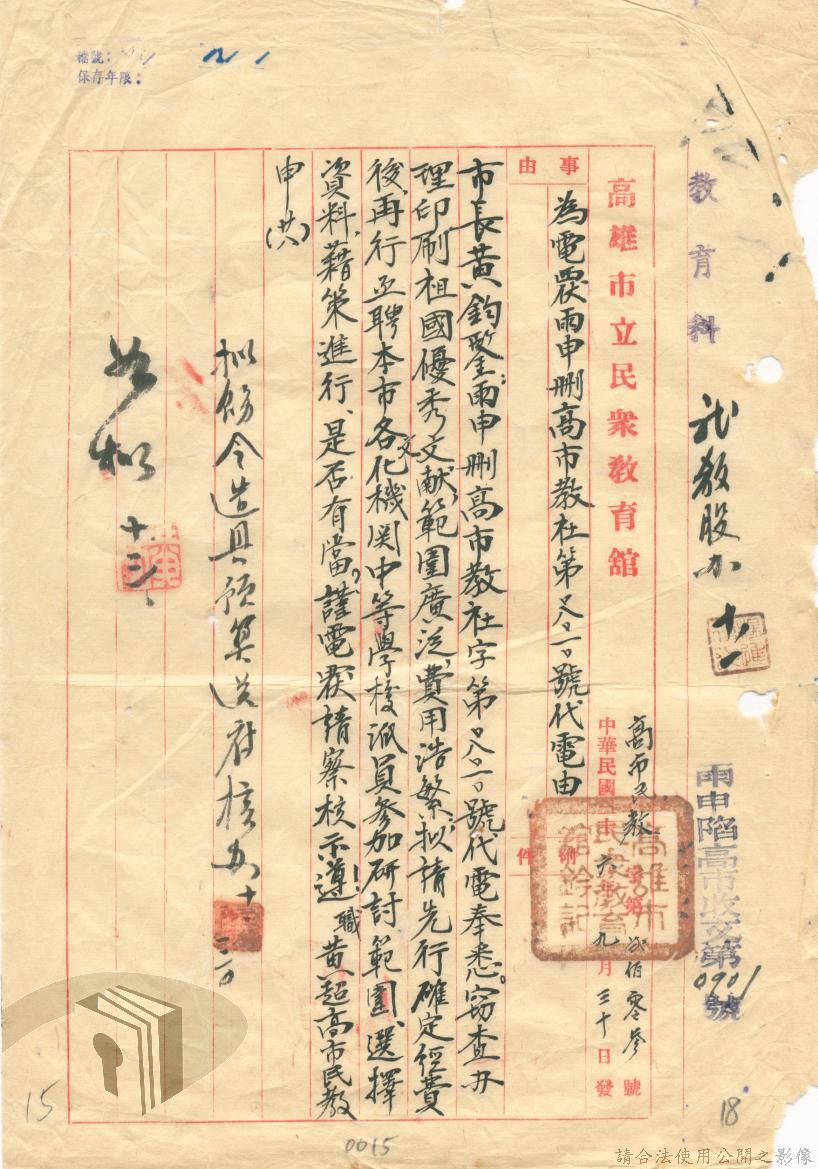 檔號：
保存年限：
教育科
社教股办 十、一
雨申陷高市收文第0901號
高雄市立民衆教育館
高市民教字第 佰零參號
中華民國 六年九月三十日發
高雄市民衆教育館鈐記
事由
為電覆雨申刪高市教社第 號代電由
附件
市長黃鈞鑒：雨申刪高市教社字第 號代電奉悉。窃查办
理印刷祖國優秀文献，範圍廣泛，費用浩繁，拟請先行確定經費
後，再行函聘本市各文化機関中等學校派員參加研討範圍、選擇
資料、藉策進行、是否有當，謹電覆請察核示遵！職黄超高市民教
申(卅)
拟飭令造具預算送府核办 十、
如拟 十、三、
15
18
0015
請合法使用公開之影像